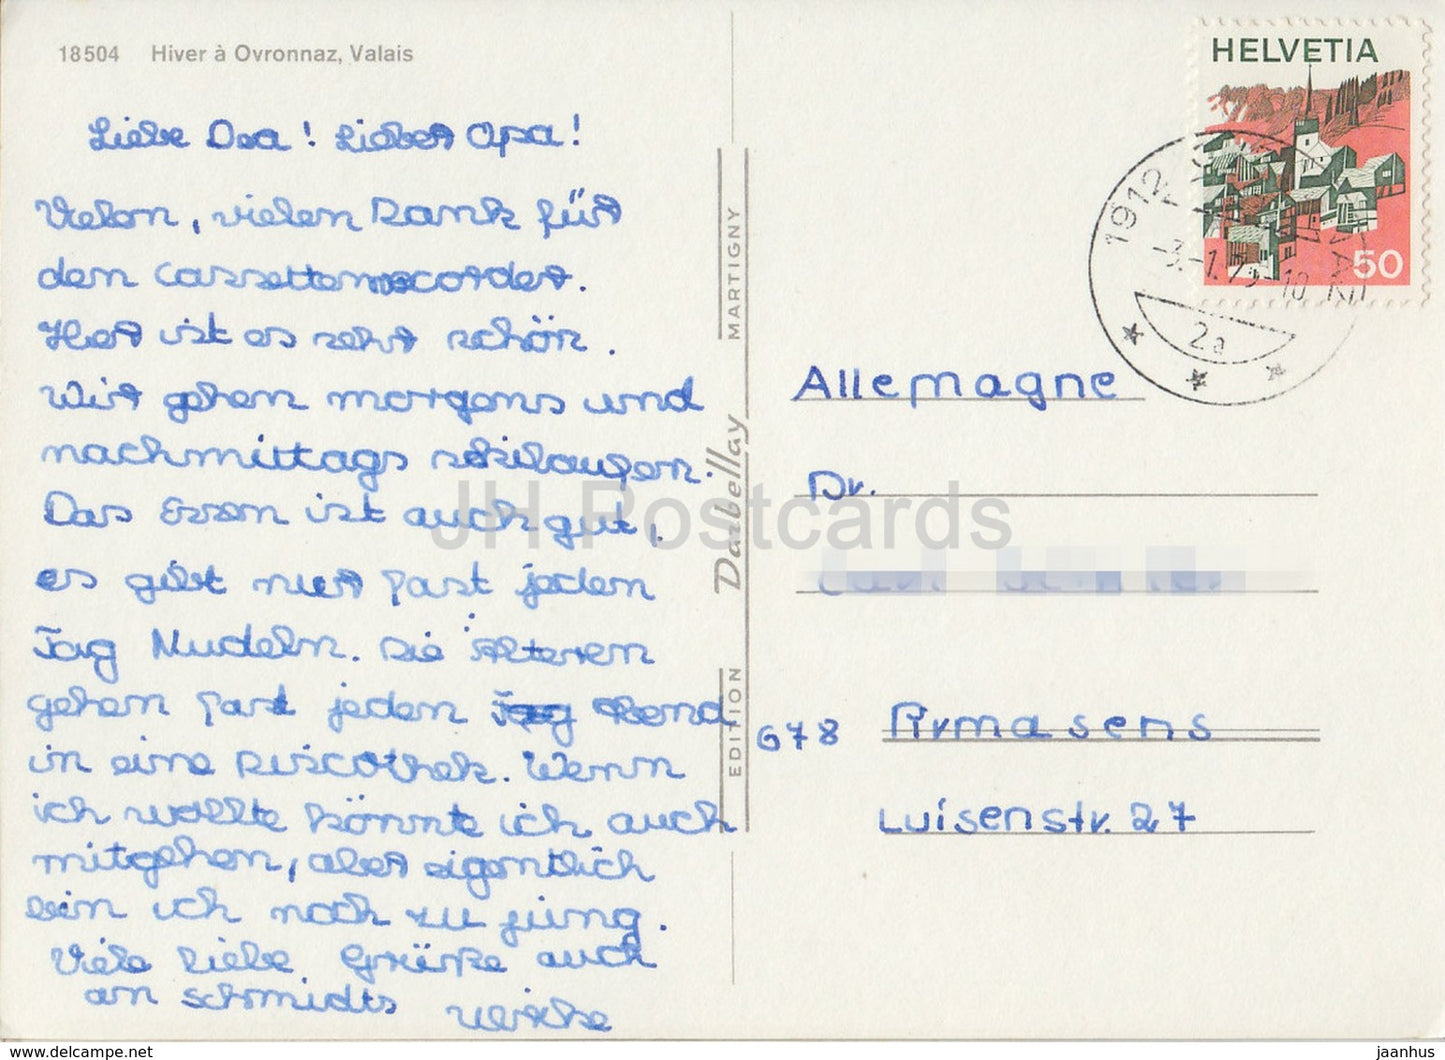 18504 Hiver à Ovronnaz, Valais
Liebe Oma! Lieber Opa!
Vielen, vielen Dank für
den Cassettenrecorder.
Hier ist es sehr schön.
Wir gehen morgens und
nachmittags skilaufen.
Das Essen ist auch gut,
es gibt nur fast jeden
Tag Nudeln. Die Älteren
gehen fast jeden Abend
in eine Discothek. Wenn
ich wollte könnte ich auch
mitgehen, aber eigentlich
bin ich noch zu jung.
Viele liebe Grüße auch
an Schmidts
EDITION Darbellay MARTIGNY
HELVETIA
50
1912
2a
Allemagne
Dr.
678 Pirmasens
Luisenstr. 27
JH Postcards
https://www.jh-postcards.com
jaanhus